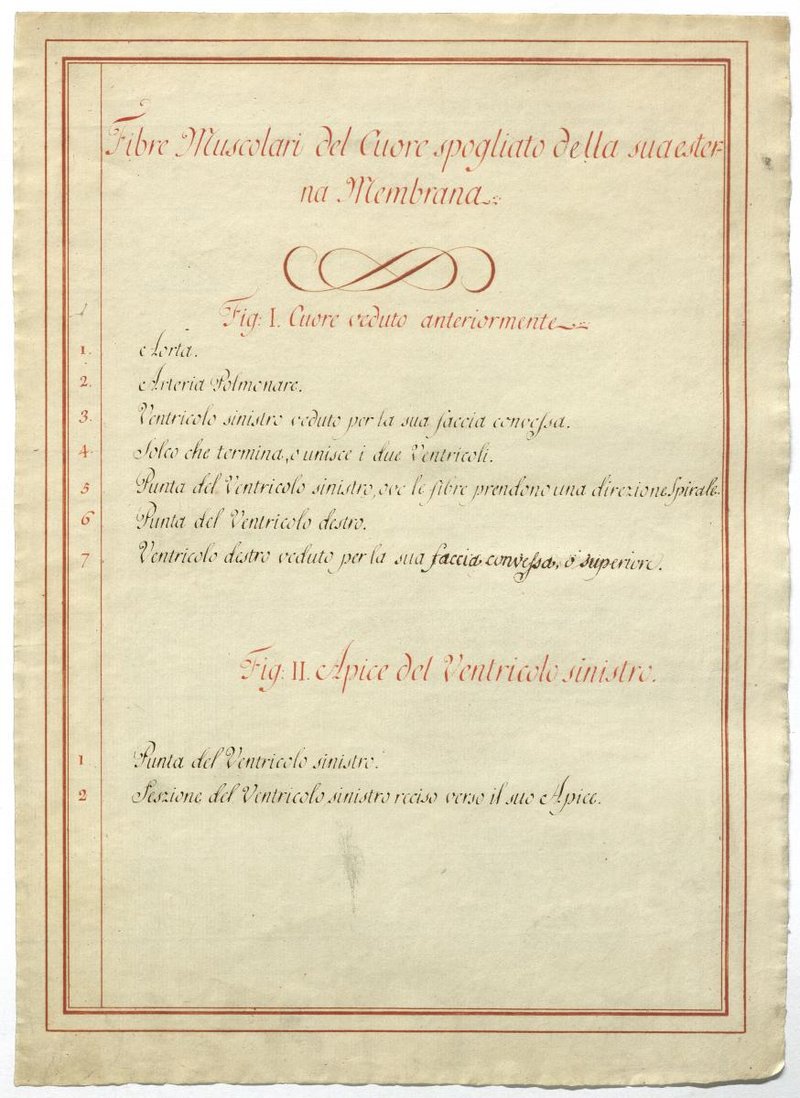 Fibre Muscolari del Cuore spogliato della sua ester-
na Membrana
Fig: I. Cuore veduto anteriormente
1. Aorta.
2. Arteria Polmonare.
3. Ventricolo sinistro veduto per la sua faccia convessa.
4. Solco che termina, o unisce i due Ventricoli.
5 Punta del Ventricolo sinistro, ove le fibre prendono una direzione Spirale.
6 Punta del Ventricolo destro.
7 Ventricolo destro veduto per la sua faccia convessa, o' superiore.
Fig: II. Apice del Ventricolo sinistro.
1 Punta del Ventricolo sinistro.
2 Seszione del Ventricolo sinistro reciso verso il suo Apice.